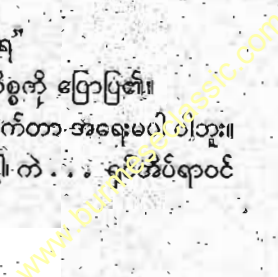 ရ"
စ္စကို ပြောပြ၏။
က်တာ အရေးမပါ ပါဘူး။
ါ။ ကဲ . . . ရှင်အိပ်ရာဝင်
www.burmeseclassic.com